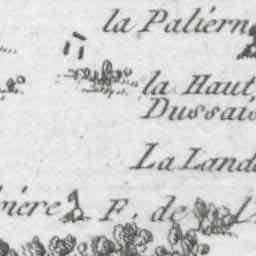 la Paliérn
la Haut
Dussais
La Land
F. de